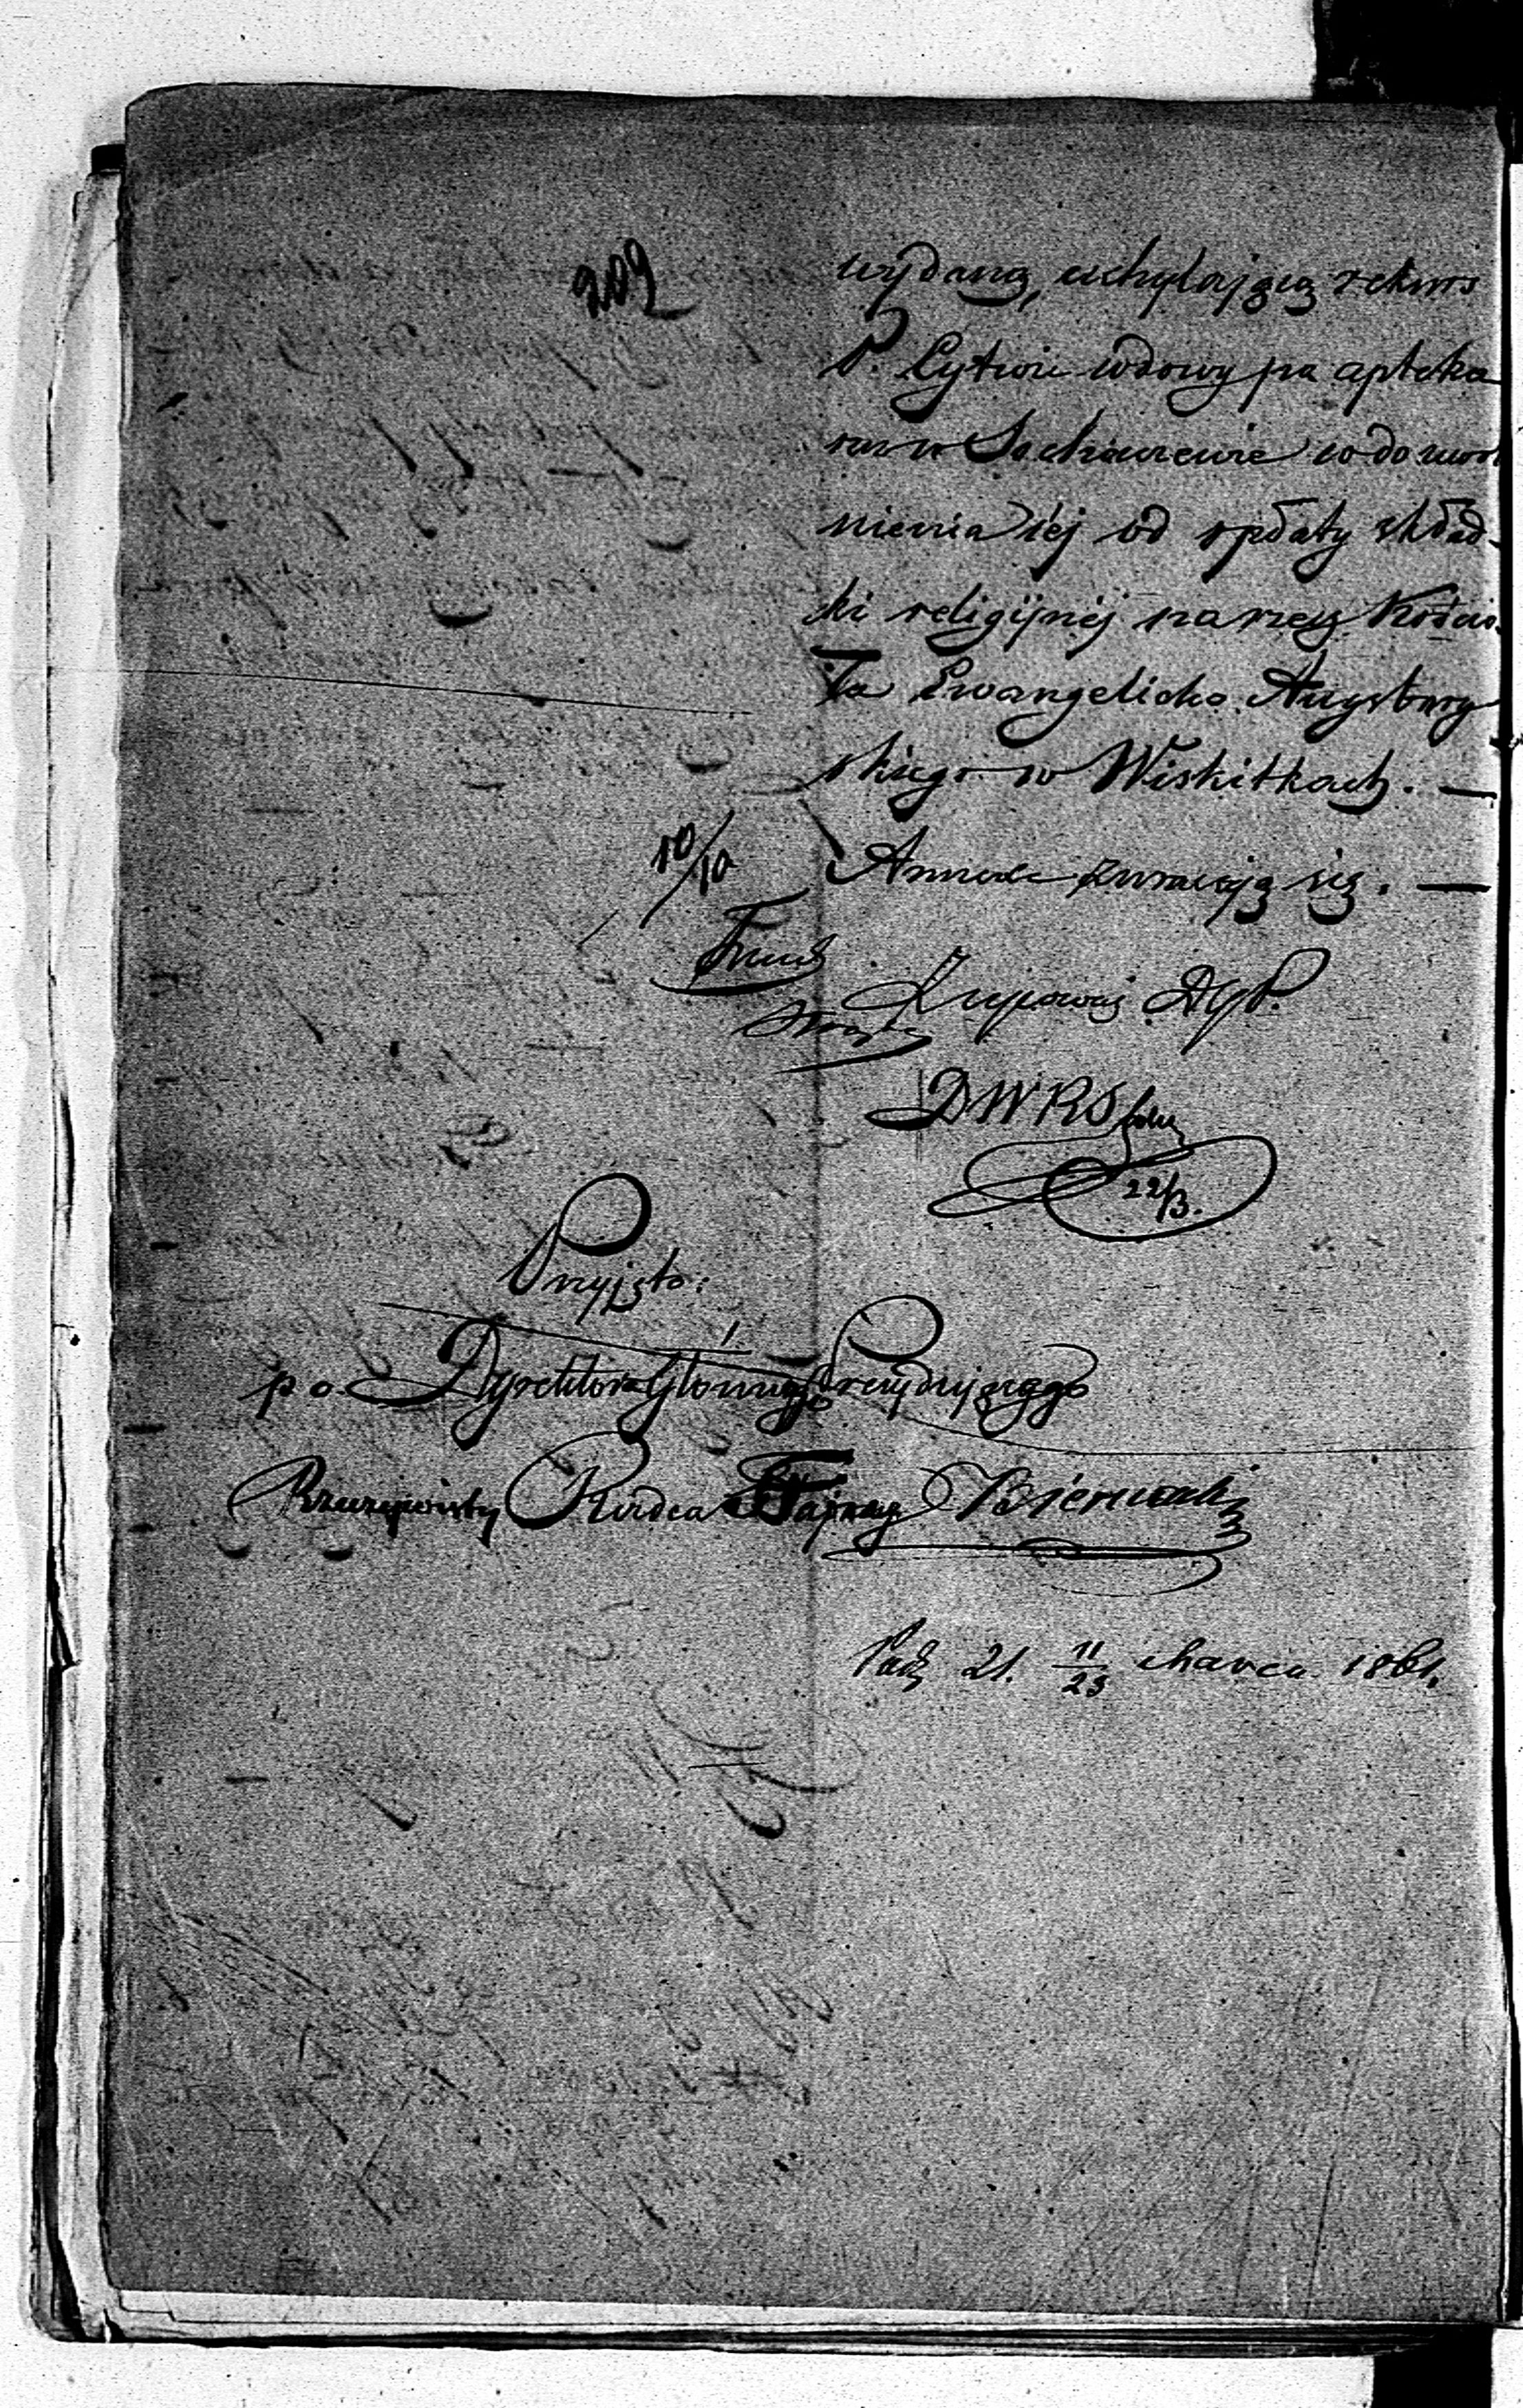 202
wydaną, uchylającą rekurs
P. Cytwic wdowy po apteka
rzu w Sochaczewie co do uwol
nienia iéj od opłaty skład-
ki religijnéj na rzecz Kościo-
ła Ewangelicko-Augsburg
skiego w Wiskitkach. —
Annexa zwracają się. —
10/10
DWRS
22/3.
Przyjęto:
p. o. Dyrektora Głównego Prezydującego
Rzeczywisty Radca Tajny
21. 11/23 Marca 1861.